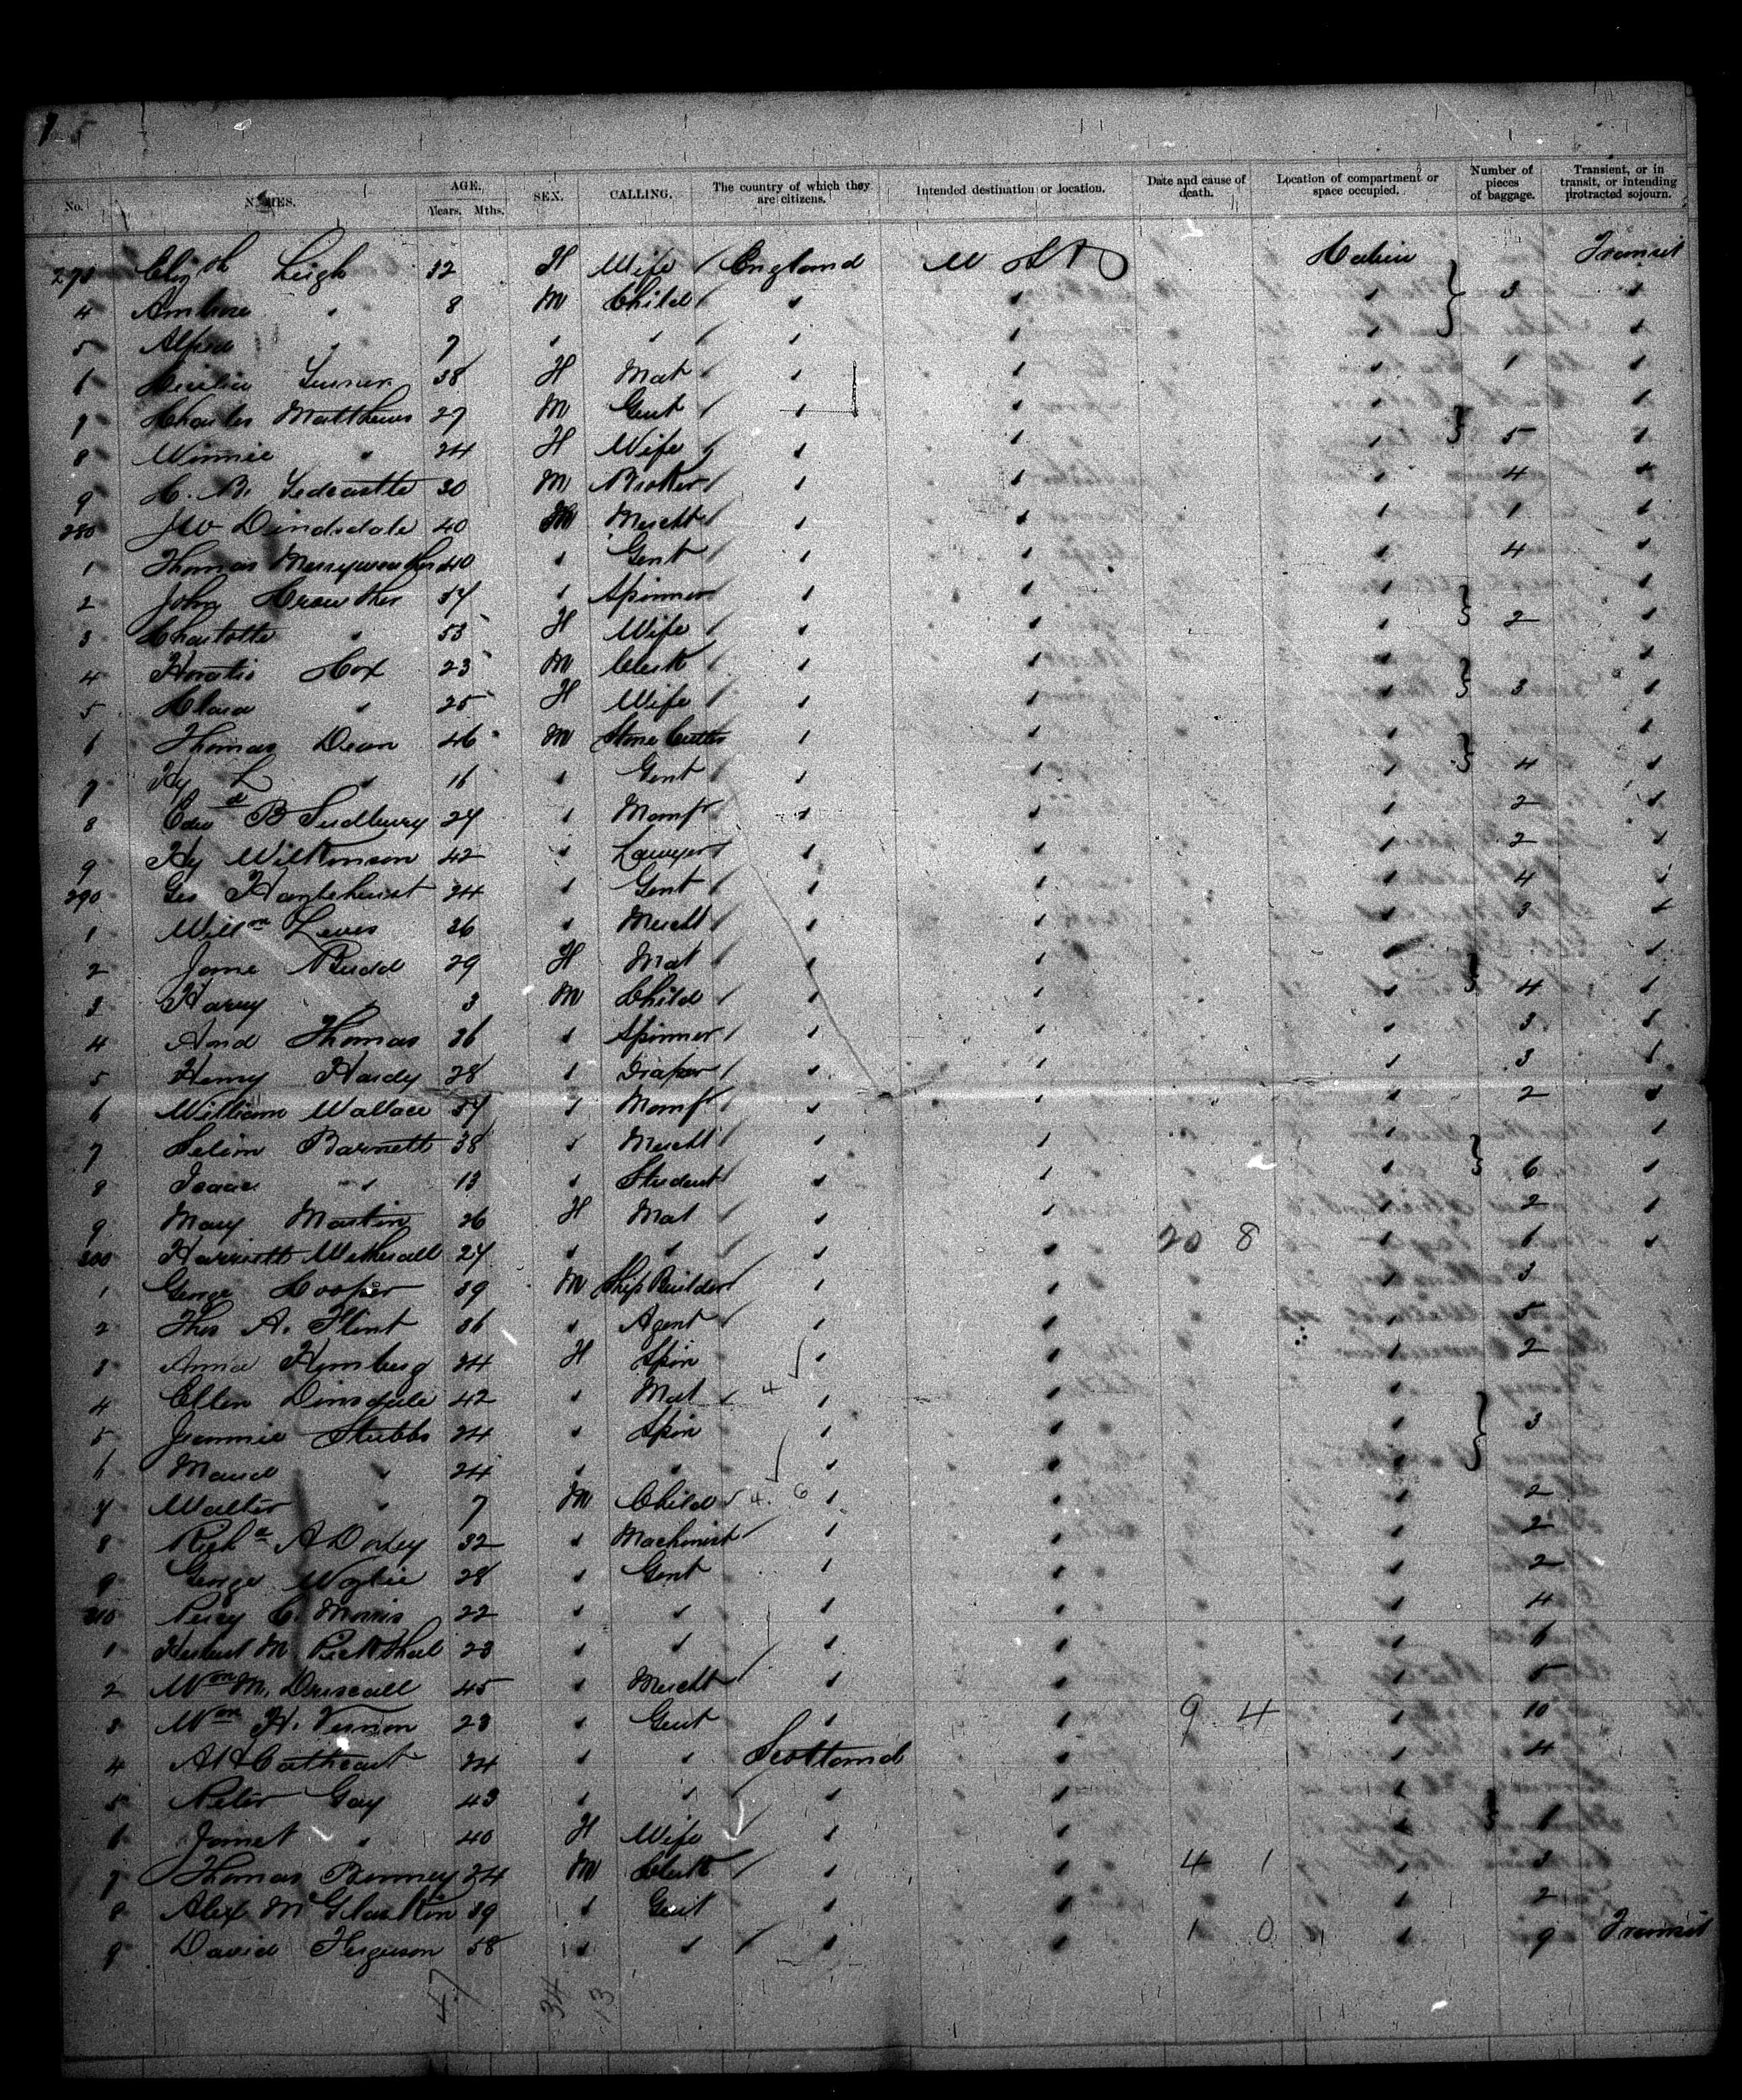 No. NAMES. AGE. Years. Mths. SEX. CALLING. The country of which they are citizens. Intended destination or location. Date and cause of death. Location of compartment or space occupied. Number of pieces of baggage. Transient, or in transit, or intending protracted sojourn.
Leigh 32 F Wife England Cabin Transit
4 Ambrose " 8 M Child " " " 3 "
5 Alfred " 7 " " " " " "
6 Turner 38 F Mat " " " 1 "
7 Charles Matthews 27 M Gent " " " "
8 Winnie " 24 F Wife " " " 5 "
9 30 M Broker " " " 4 "
280 JW Dindsdale 40 M Mercht " " " 1 "
1 Thomas Merryweather 40 " Gent " " " 4 "
2 John Crowther 54 " Spinner " " " "
3 Charlotte " 53 F Wife " " " 2 "
4 Horatio Cox 23 M Clerk " " " "
5 Clara " 25 F Wife " " " 3 "
6 Thomas Dean 46 M Stone Cutter " " " "
7 Hy L " 16 " Gent " " " 4 "
8 Edwd B Sudbury 24 " Manfr " " " 2 "
9 Hy Wilkinson 42 " Lawyer " " " 2 "
290 Geo Hazlehurst 24 " Gent " " " 4 "
1 Willm 36 " Mercht " " " 3 "
2 Jane Budd 29 F Mat " " " "
3 Harry " 3 M Child " " " 4 "
4 And Thomas 36 " Spinner " " " 3 "
5 Henry Hardy 28 " Draper " " " 3 "
6 William Wallace 54 " Manfr " " " 2 "
7 Selim Barnett 38 " Mercht " " " "
8 Isaac " 13 " Student " " " 6 "
9 Mary Martin 26 F Mat " " " 2 "
300 Harriett Witherall 24 " " " " 20 8 " 1 "
1 George Cooper 39 M Ship Builder " " " 3
2 Thos A. Flint 36 " Agent " " " 5
3 Anna 24 F Spin " " " 2
4 Ellen Dinsdale 42 " Mat " " "
5 Jeannie Stubbs 24 " Spin " " " 3
6 Maud " 24 " " " " "
7 Walter " 7 M Child 4 6 " " " 2
8 Richd A Doxey 32 " Machinist " " " 2
9 George Wylie 28 " Gent " " " 2
310 Percy C. Morris 22 " " " " " 4
1 Herbert M. Pickthal 23 " " " " " 6
2 Wm M. Driscoll 45 " Mercht " " " 5
3 Wm H. Vernon 23 " Gent " " 9 4 " 10
4 Cathcart 24 " " Scotland " " 4
5 Peter Gay 43 " " " " "
6 Janet " 40 F Wife " " " 6
7 Thomas Binney 24 M Clerk " " 4 1 " 3
8 Alex 39 " Gent " " " 2
9 David Ferguson 58 " " " " 1 0 " 9 Transit
47 34 13